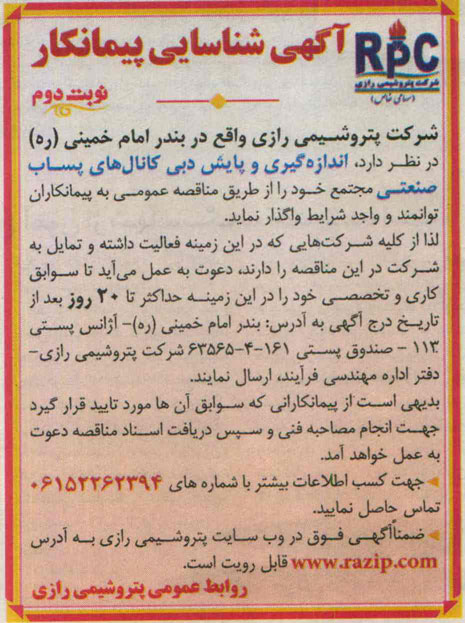 آگهی شناسایی پیمانکار
RPC
شرکت پتروشیمی رازی
(سهامی خاص)
نوبت دوم
شرکت پتروشیمی رازی واقع در بندر امام خمینی (ره)
در نظر دارد، اندازه‌گیری و پایش دبی کانال‌های پساب
صنعتی مجتمع خود را از طریق مناقصه عمومی به پیمانکاران
توانمند و واجد شرایط واگذار نماید.
لذا از کلیه شرکت‌هایی که در این زمینه فعالیت داشته و تمایل به
شرکت در این مناقصه را دارند، دعوت به عمل می‌آید تا سوابق
کاری و تخصصی خود را در این زمینه حداکثر تا ۲۰ روز بعد از
تاریخ درج آگهی به آدرس: بندر امام خمینی (ره)- آژانس پستی
۱۱۳ - صندوق پستی ۱۶۱-۴-۶۳۵۶۵ شرکت پتروشیمی رازی-
دفتر اداره مهندسی فرآیند، ارسال نمایند.
بدیهی است از پیمانکارانی که سوابق آن ها مورد تایید قرار گیرد
جهت انجام مصاحبه فنی و سپس دریافت اسناد مناقصه دعوت
به عمل خواهد آمد.
جهت کسب اطلاعات بیشتر با شماره های ۰۶۱۵۲۲۶۲۳۹۴
تماس حاصل نمایید.
ضمناً آگهی فوق در وب سایت پتروشیمی رازی به آدرس
www.razip.com قابل رویت است.
روابط عمومی پتروشیمی رازی